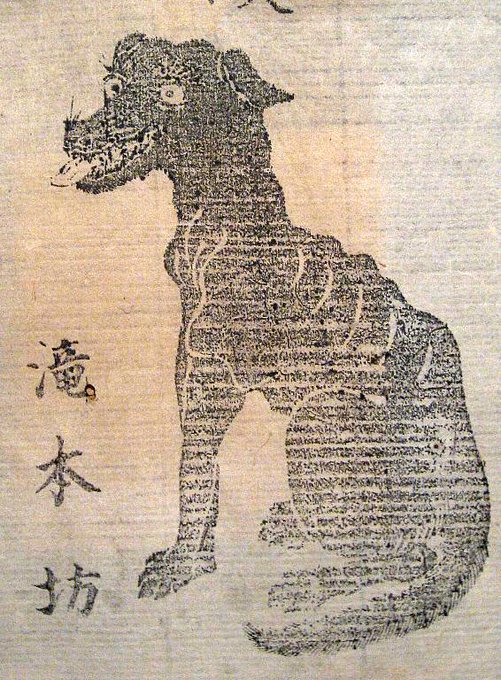 滝本坊